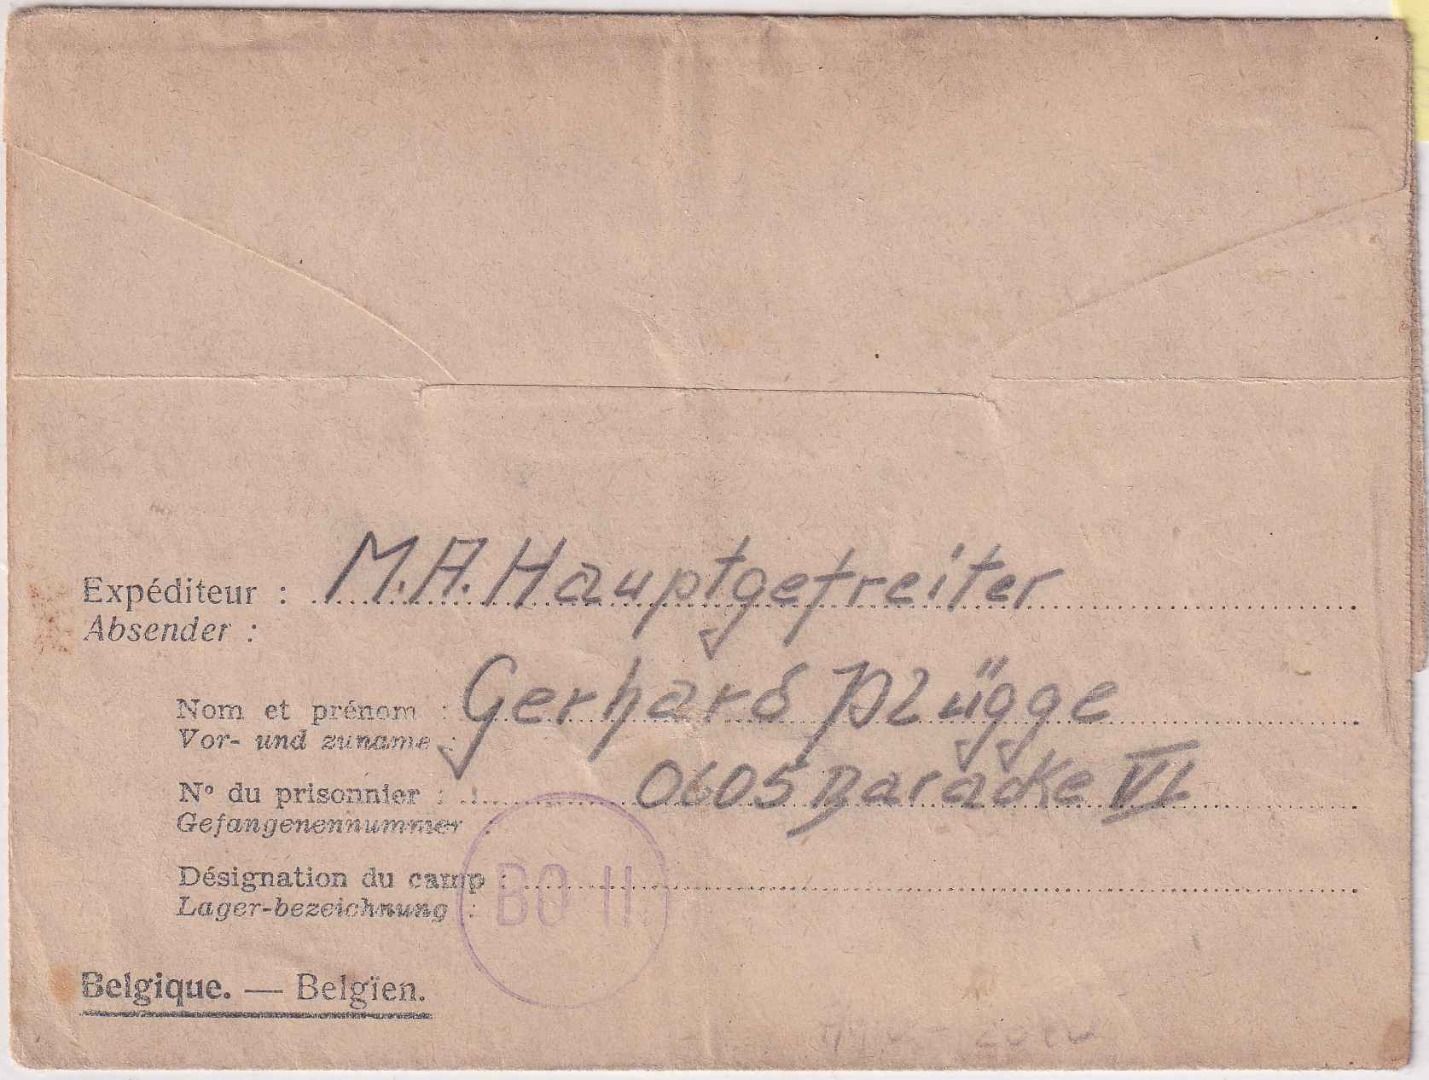 Expéditeur : M.A. Hauptgefreiter
Absender :
Nom et prénom : Gerhard Plügge
Vor- und zuname :
N° du prisonnier : 0605 Baracke VI
Gefangenennummer :
Désignation du camp :
Lager-bezeichnung :
BO II
Belgique. — Belgïen.